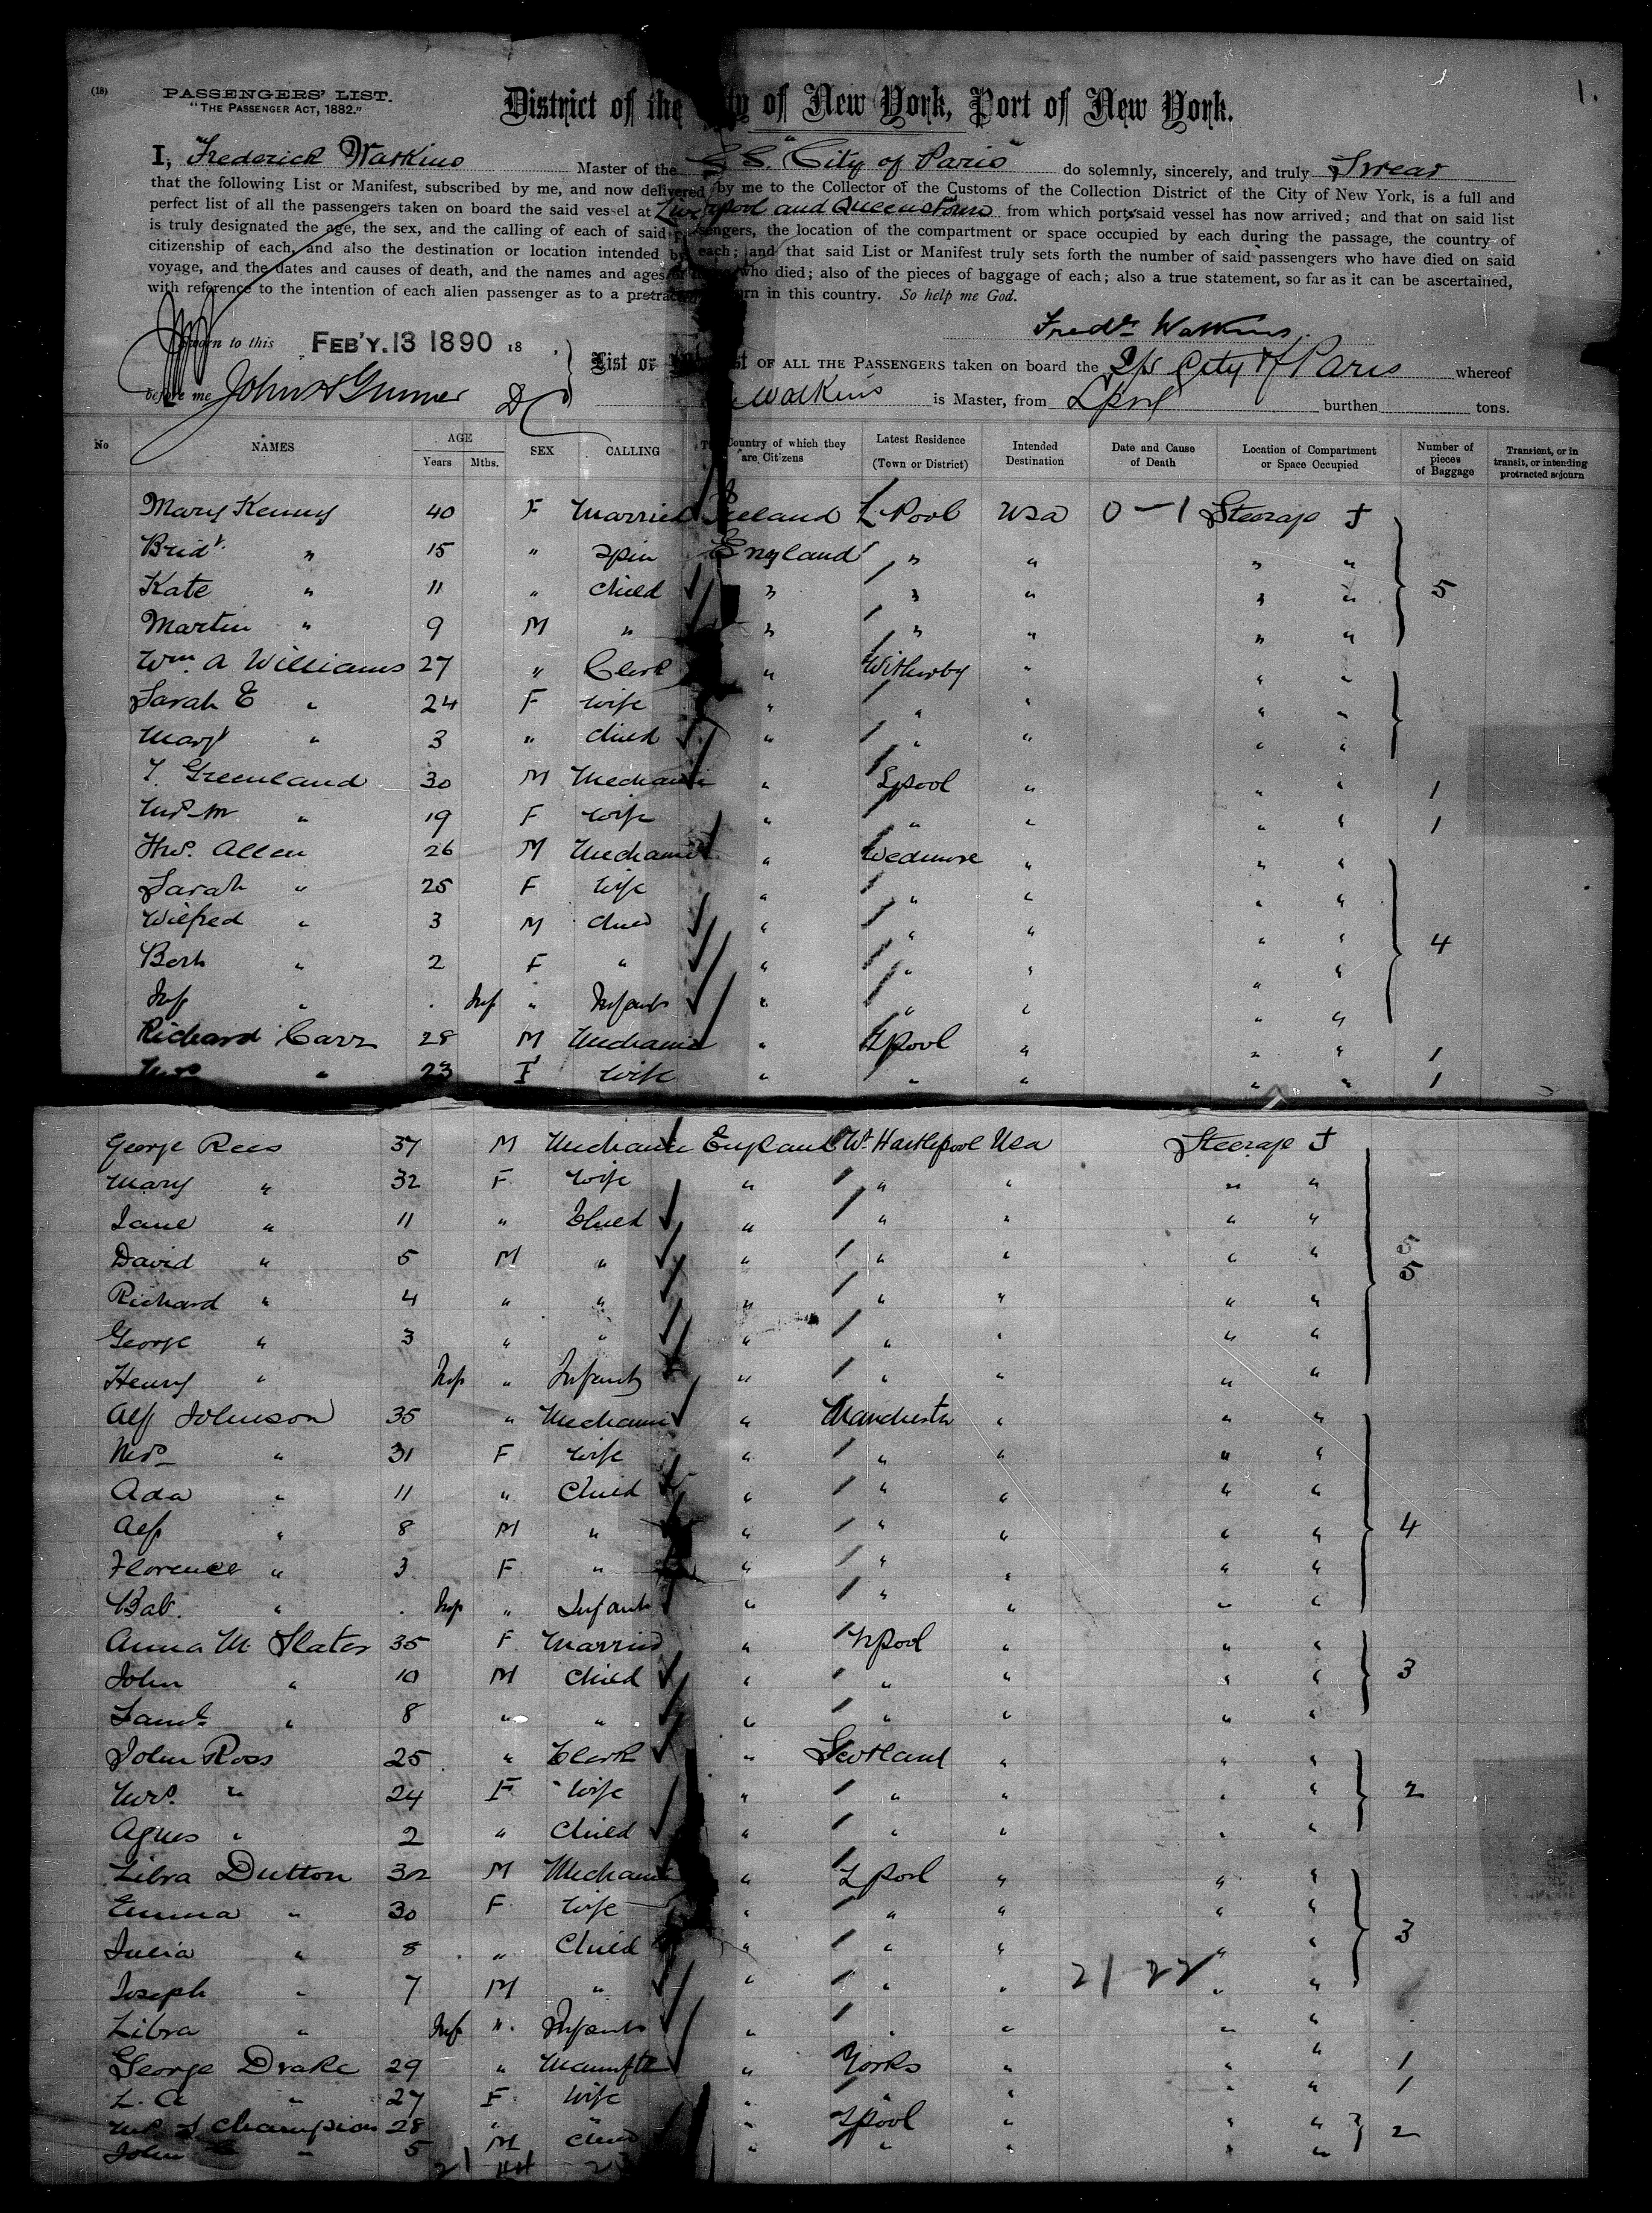 (18)
PASSENGERS' LIST.
"THE PASSENGER ACT, 1882."
District of the City of New York, Port of New York.
1.
I, Frederick Watkins Master of the S.S. "City of Paris" do solemnly, sincerely, and truly Swear
that the following List or Manifest, subscribed by me, and now delivered by me to the Collector of the Customs of the Collection District of the City of New York, is a full and
perfect list of all the passengers taken on board the said vessel at Liverpool and Queenstown from which ports said vessel has now arrived; and that on said list
is truly designated the age, the sex, and the calling of each of said passengers, the location of the compartment or space occupied by each during the passage, the country of
citizenship of each, and also the destination or location intended by each; and that said List or Manifest truly sets forth the number of said passengers who have died on said
voyage, and the dates and causes of death, and the names and ages of those who died; also of the pieces of baggage of each; also a true statement, so far as it can be ascertained,
with reference to the intention of each alien passenger as to a protracted sojourn in this country. So help me God.
Fredk Watkins
Sworn to this FEB'Y. 13 1890 18
List or Manifest OF ALL THE PASSENGERS taken on board the S/S City of Paris whereof
before me John A Gunner D C
Watkins is Master, from Lpool burthen tons.
No NAMES AGE Years Mths. SEX CALLING The Country of which they are Citizens Latest Residence (Town or District) Intended Destination Date and Cause of Death Location of Compartment or Space Occupied Number of pieces of Baggage Transient, or in transit, or intending protracted sojourn
Mary Kenny 40 F Married Ireland L'Pool Usa 0-1 Steerage J
Bridt " 15 " Spin England " " " "
Kate " 11 " Child " " " " " 5
Martin " 9 M " " " " " "
Wm A Williams 27 " Clerk " Witherby " " "
Sarah E " 24 F Wife " " " " "
Margt " 3 " Child " " " " "
T Greenland 30 M Mechanic " Lpool " " " 1
Mrs M " 19 F Wife " " " " " 1
Thos. Allen 26 M Mechanic " Wedmore " " "
Sarah " 25 F Wife " " " " "
Wilfred " 3 M Child " " " " "
Berth " 2 F " " " " " " 4
Inf " . Inf " Infants " " " " "
Richard Carr 28 M Mechanic " Lpool " " " 1
Mrs " 23 F Wife " " " " " 1
George Rees 37 M Mechanic England Wt Hartlepool Usa Steerage J
Mary " 32 F Wife " " " " "
Jane " 11 " Child " " " " "
David " 5 M " " " " " " 5
Richard " 4 " " " " " " " 5
George " 3 " " " " " " "
Henry " Inf " Infants " " " " "
Alf Johnson 35 " Mechanic " Manchester " " "
Mrs " 31 F Wife " " " " "
Ada " 11 " Child " " " " "
Alf " 8 M " " " " " " 4
Florence " 3 F " " " " " "
Bab. " . Inf " Infants " " " " "
Anna M Slater 35 F Married " Lpool " " "
John " 10 M Child " " " " " 3
Saml " 8 " " " " " " "
John Ross 25 " Clerk " Scotland " " "
Mrs. " 24 F Wife " " " " " 2
Agnes " 2 " Child " " " " "
Libra Dutton 32 M Mechanic " Lpool " " "
Emma " 30 F Wife " " " " "
Julia " 8 " Child " " " " " 3
Joseph " 7 M " " " " 21 22 " "
Libra " Inf " Infants " " " " "
George Drake 29 " Manuftr " Yorks " " " 1
L. A " 27 F Wife " " " " " 1
Mrs S Champion 28 " " " Lpool " " " 2
John " 5 M Child " " " " "
21